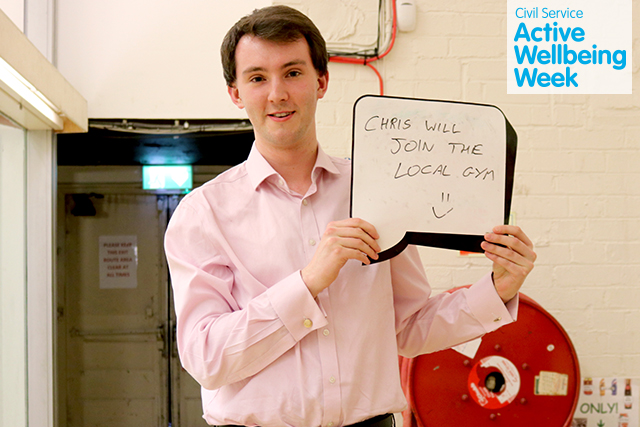 Civil Service
Active
Wellbeing
Week
CHRIS WILL
JOIN THE
LOCAL GYM
PLEASE KEEP
THIS EXIT
ROUTE AREA
CLEAR AT
ALL TIMES
ONLY!